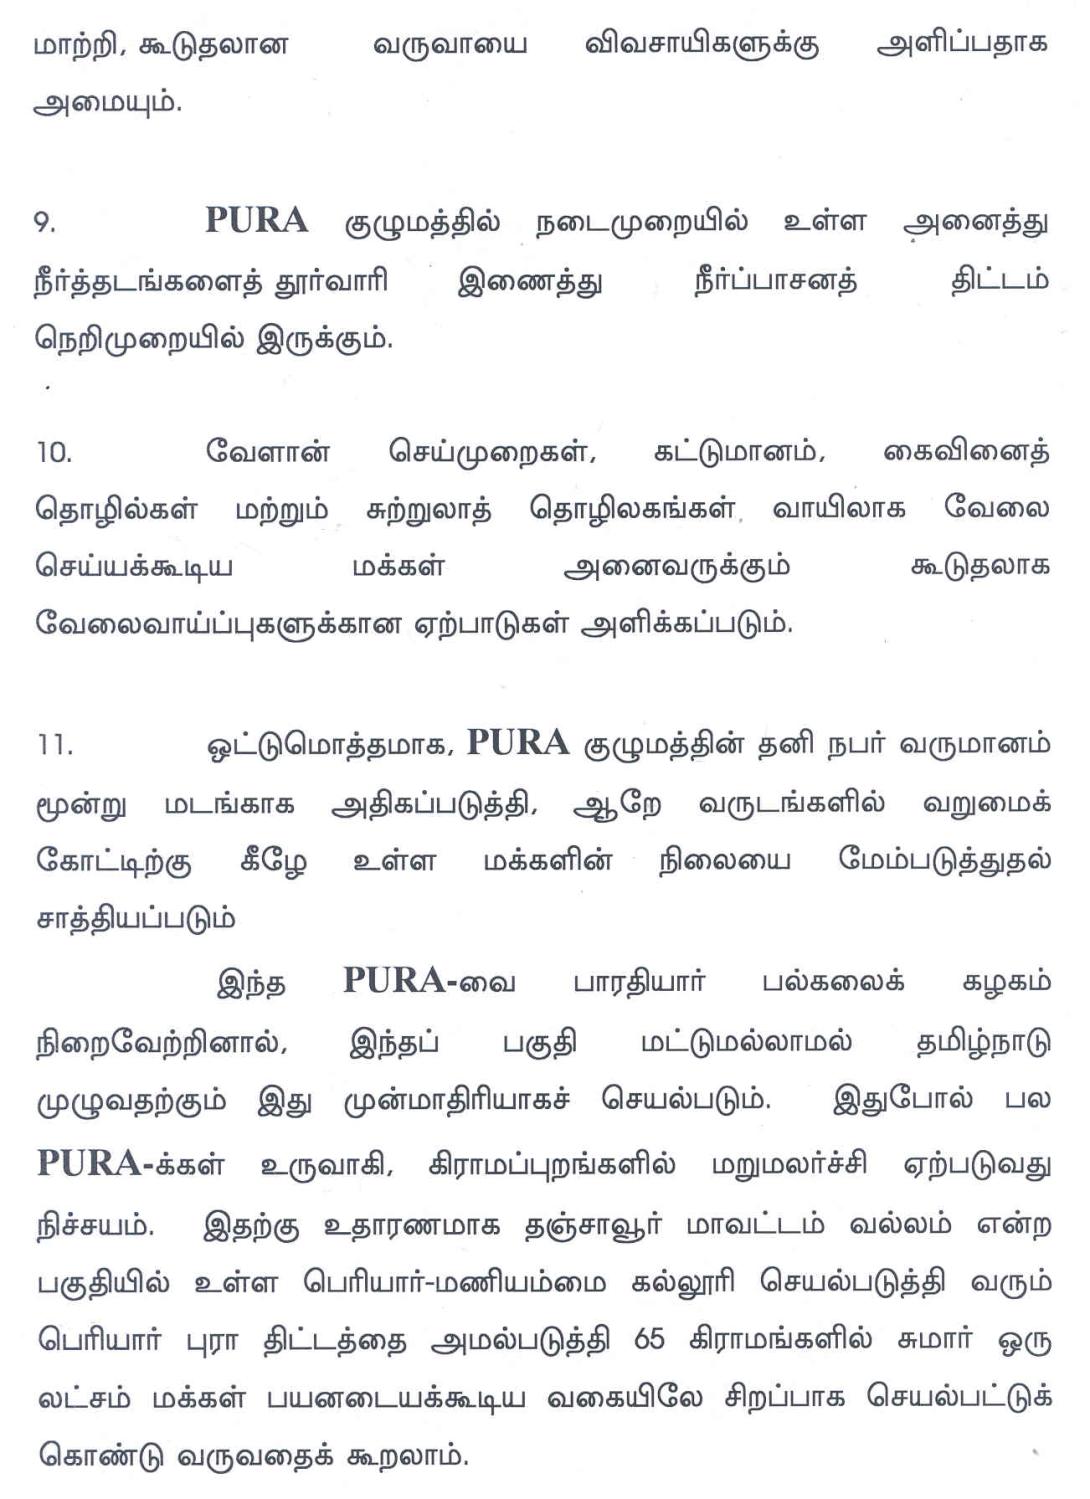 மாற்றி, கூடுதலான வருவாயை விவசாயிகளுக்கு அளிப்பதாக
அமையும்.
9. PURA குழுமத்தில் நடைமுறையில் உள்ள அனைத்து
நீர்த்தடங்களைத் தூர்வாரி இணைத்து நீர்ப்பாசனத் திட்டம்
நெறிமுறையில் இருக்கும்.
10. வேளான் செய்முறைகள், கட்டுமானம், கைவினைத்
தொழில்கள் மற்றும் சுற்றுலாத் தொழிலகங்கள் வாயிலாக வேலை
செய்யக்கூடிய மக்கள் அனைவருக்கும் கூடுதலாக
வேலைவாய்ப்புகளுக்கான ஏற்பாடுகள் அளிக்கப்படும்.
11. ஒட்டுமொத்தமாக, PURA குழுமத்தின் தனி நபர் வருமானம்
மூன்று மடங்காக அதிகப்படுத்தி, ஆறே வருடங்களில் வறுமைக்
கோட்டிற்கு கீழே உள்ள மக்களின் நிலையை மேம்படுத்துதல்
சாத்தியப்படும்
இந்த PURA-வை பாரதியார் பல்கலைக் கழகம்
நிறைவேற்றினால், இந்தப் பகுதி மட்டுமல்லாமல் தமிழ்நாடு
முழுவதற்கும் இது முன்மாதிரியாகச் செயல்படும். இதுபோல் பல
PURA-க்கள் உருவாகி, கிராமப்புறங்களில் மறுமலர்ச்சி ஏற்படுவது
நிச்சயம். இதற்கு உதாரணமாக தஞ்சாவூர் மாவட்டம் வல்லம் என்ற
பகுதியில் உள்ள பெரியார்-மணியம்மை கல்லூரி செயல்படுத்தி வரும்
பெரியார் புரா திட்டத்தை அமல்படுத்தி 65 கிராமங்களில் சுமார் ஒரு
லட்சம் மக்கள் பயனடையக்கூடிய வகையிலே சிறப்பாக செயல்பட்டுக்
கொண்டு வருவதைக் கூறலாம்.